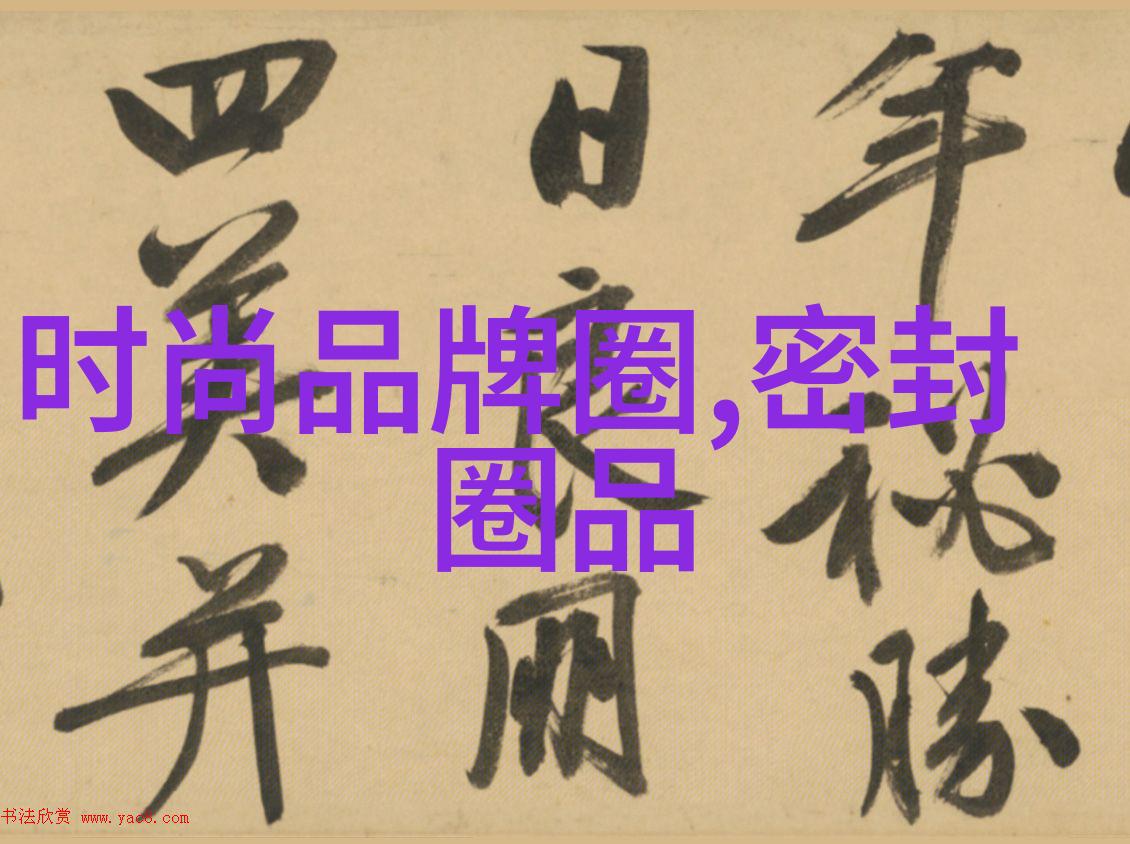 年秘勝
日良朋
四美并
时尚品牌圈,密封
圈品
书法欣赏 www.yac8.com